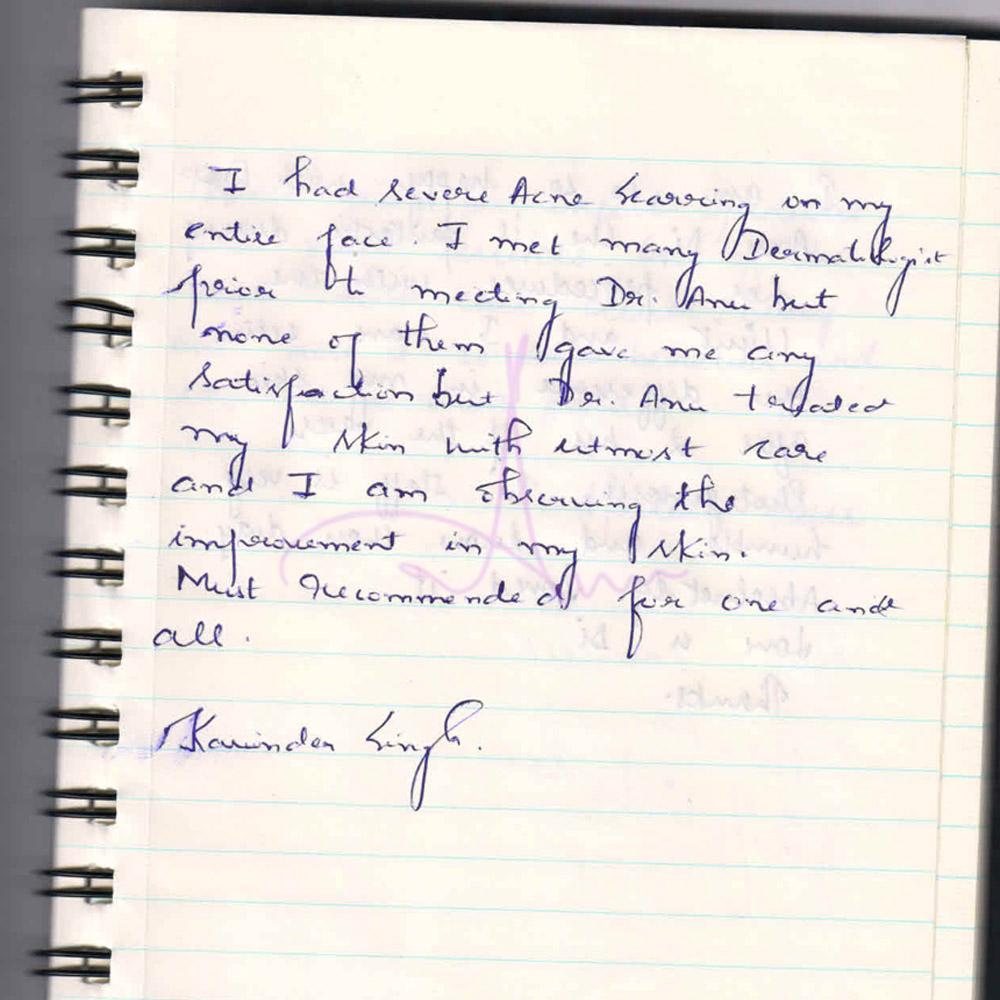 I had severe Acne Scarring on my
entire face. I met many Dermatologist
prior to meeting Dr. Anu but
none of them gave me any
satisfaction but Dr. Anu treated
my skin with utmost care
and I am observing the
improvement in my skin.
Must recommended for one and
all.
Kavinder Singh.